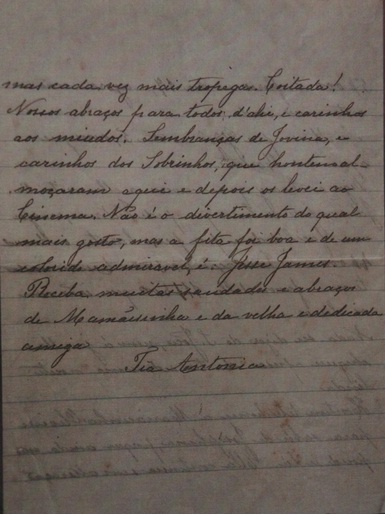 mas cada vez mais tropega. Coitada!
Nossos abraços para todos d'ahi, e carinhos
aos miudos. Lembranças de Jovina, e
carinhos dos Sobrinhos, que hontem al-
moçaram aqui e depois os levei ao
Cinema. Não é o divertimento de qual
mais gosto, mas a fita foi boa e de um
colorido admiravel, é: Jesse James.
Receba muitas saudades e abraços
de Mamãesinha e da velha e dedicada
amiga
Tia Antonia